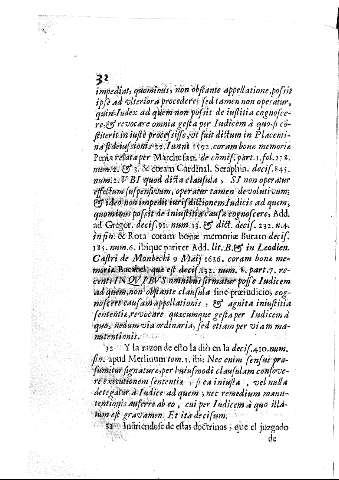 32
impediat, quominus, non obstante appellatione, possit
ipse ad vlteriora procedere; sed tamen non operatur,
quin Iudex ad quem non possit de iustitia cognosce-
re, & revocare omnia gesta per Iudicem à quo, si cō-
stiterit in iustè processisse, vt fuit dictum in Placenti-
na 22. Iunii 1592. coram bonæ memoriæ
relata per Marchesan. de comis. part. 1. fol. 278.
num. 2. & 3. & coram Cardinal. Seraphin. decis. 845.
num. 2. VBI quod dicta clausula, SI non operatur
effectum suspensivum, operatur tamen devolutivum;
& ideò non impedit iurisdictionem Iudicis ad quem,
quominus possit de iniustitia causæ cognoscere, Add.
ad Gregor. decis. 91. num. 13. & dict. decis. 232. n. 4.
in fin. & Rota coram bonæ memoriæ Burato decis.
183. num. 6. ibique pariter Add. lit. B. & in Leodien.
Castri de Monbechi 9 Maij 1626. coram bonæ me-
moriæ que est decis. 232. num. 6. part. 7. re-
cent. IN QVIBVS omnibus firmatur posse Iudicem
ad quem, non obstante clausula sine præiudicio, cog-
noscere causam appellationis, & agnita iniustitia
sententiæ, revocare quæcumque gesta per Iudicem à
quo, nedum via ordinaria, sed etiam per viam ma-
nutentionis.
52 Y la razon de esto la diò en la decis. 420. num.
fin. apud Merlinum tom. 1. ibi: Nec enim sensus præ-
sumitur signaturæ, per huiusmodi clausulam confove-
re executionem sententiæ, si ea iniusta, vel nulla
detegatur à Iudice ad quem; nec remedium manu-
tentionis auferre ab eo, cui per Iudicem à quo illa-
tum est gravamen. Et ita decisum.
53 Infiriendose de estas doctrinas, que el juzgado
de